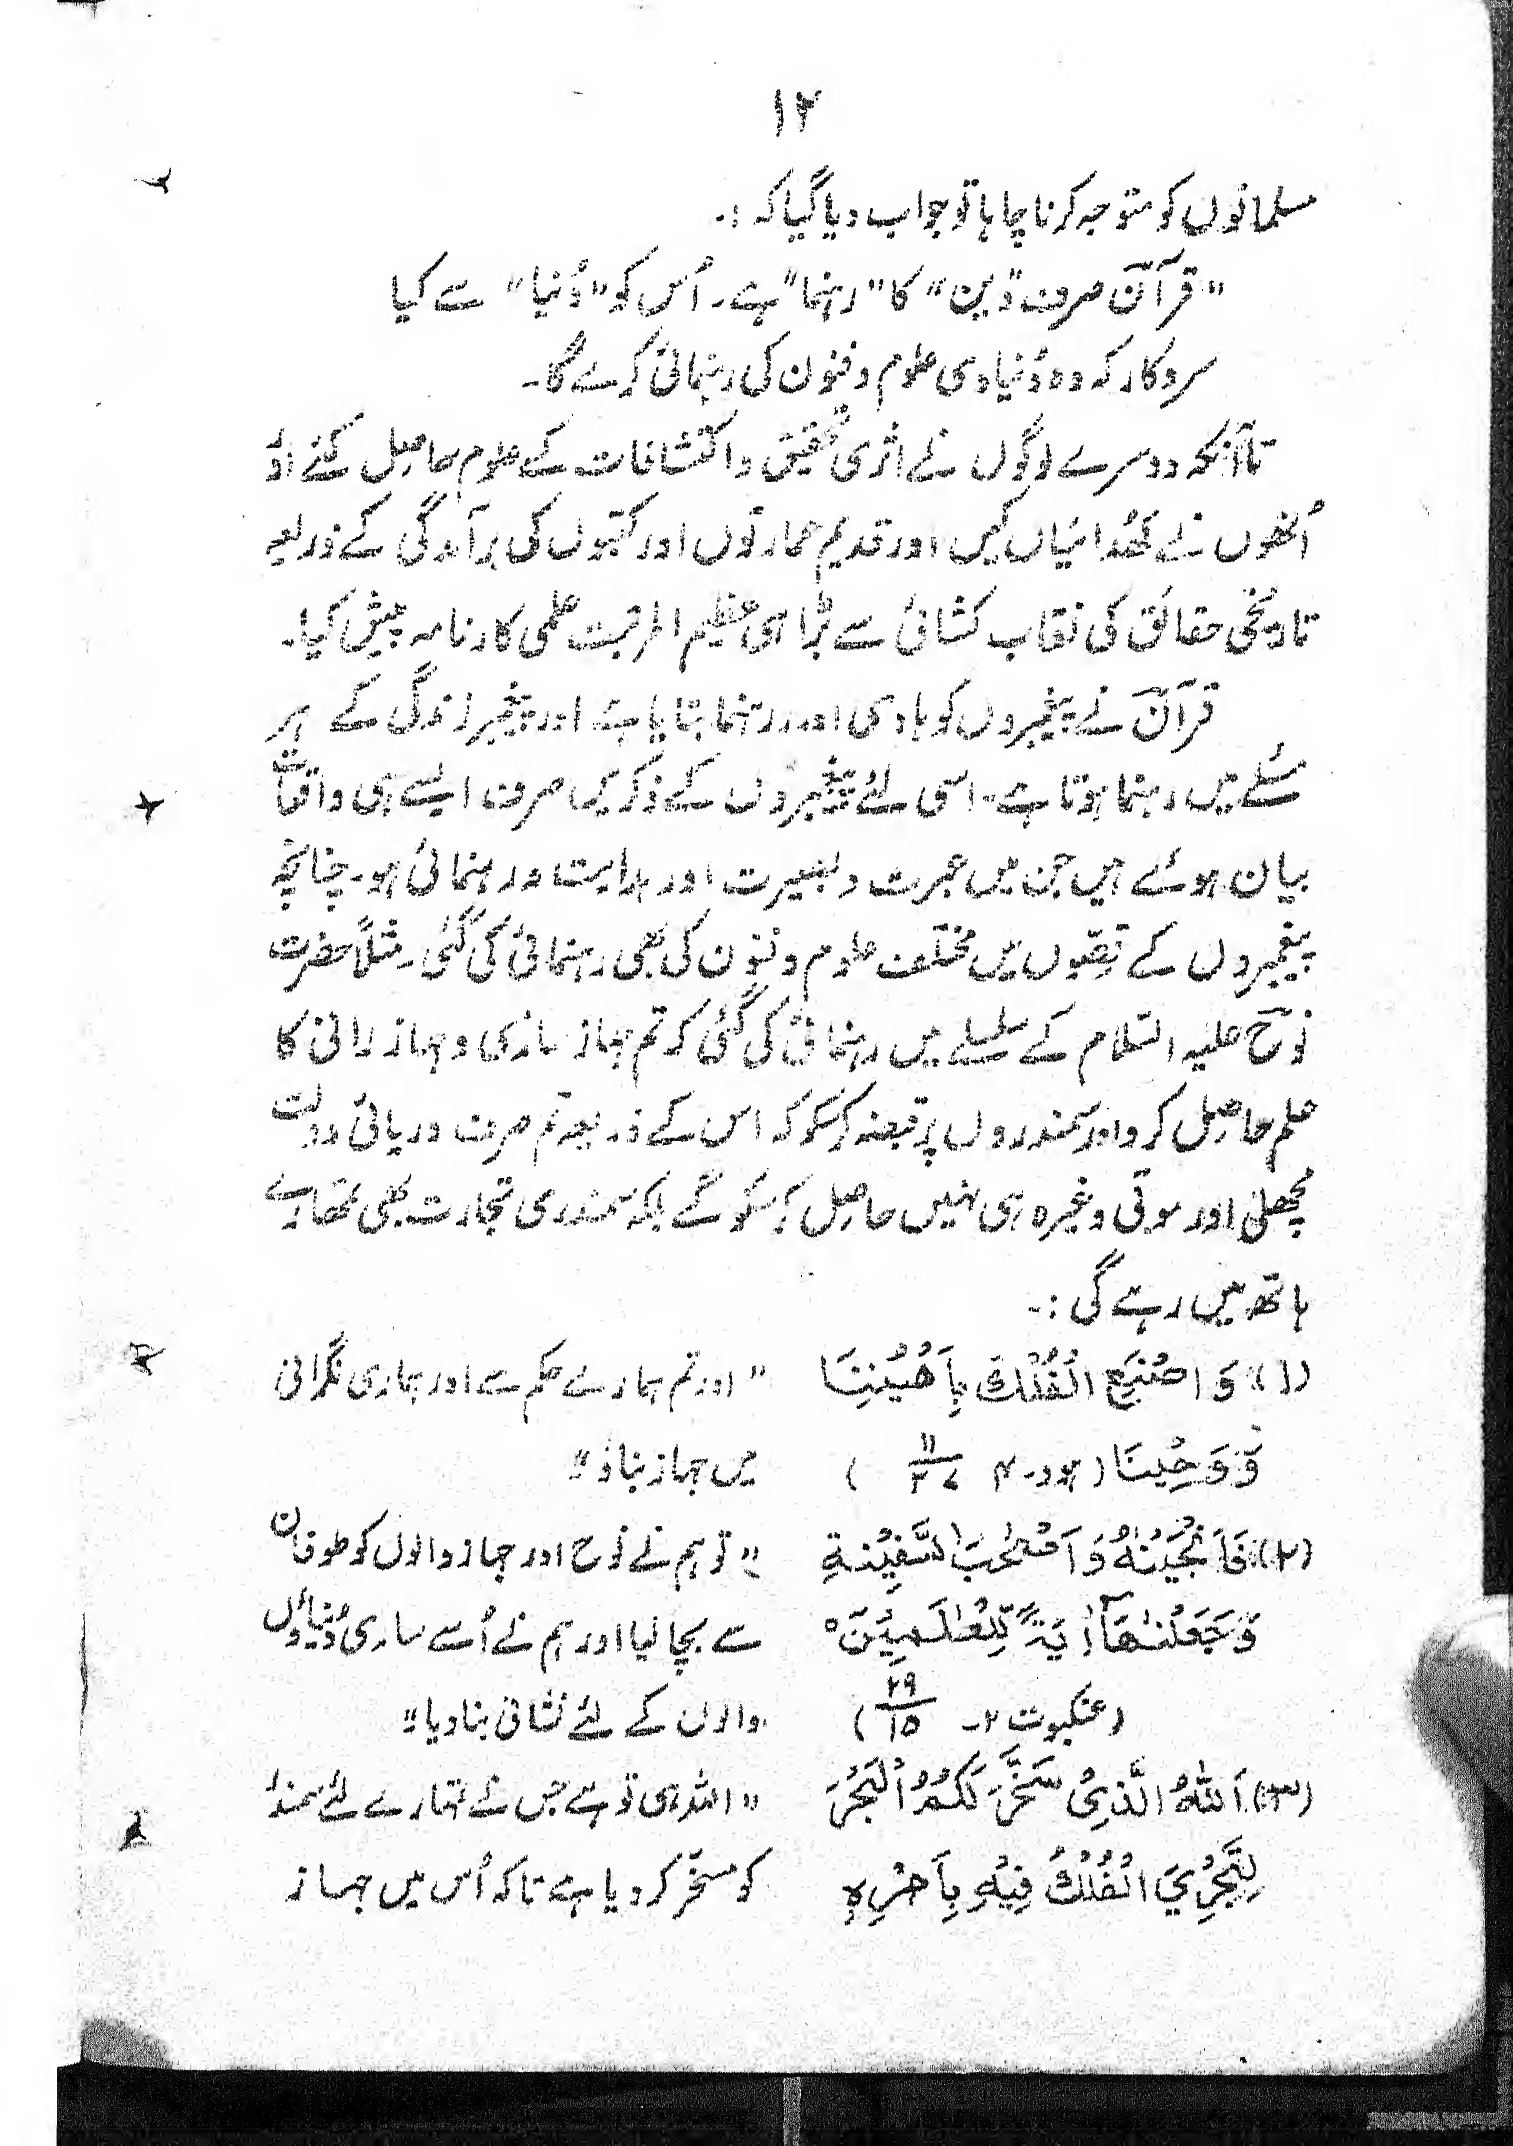 ۱۲
مسلمانوں کو متوجہ کرنا چاہا تو جواب دیا گیا کہ :۔
"قرآن صرف "دین" کا "رہنما" ہے۔ اُس کو "دُنیا" سے کیا
سروکار کہ وہ دُنیاوی علوم و فنون کی رہنمائی کرے گا۔
تا آنکہ دوسرے لوگوں نے اثری تحقیق و اکتشافات کے علوم حاصل کئے اور
اُنھوں نے کھُدائیاں کیں اور قدیم عمارتوں اور کتبوں کی برآمدگی کے ذریعہ
تاریخی حقائق کی نقاب کشائی سے بڑا ہی عظیم المرتبت علمی کارنامہ پیش کیا۔
قرآن نے پیغمبروں کو ہادی اور رہنما بتایا ہے اور پیغمبر زندگی کے ہر
مسٔلے میں رہنما ہوتا ہے۔ اسی لئے پیغمبروں کے ذکر میں صرف ایسے ہی واقعات
بیان ہوئے ہیں جن میں عبرت و بصیرت اور ہدایت و رہنمائی ہو۔ چنانچہ
پیغمبروں کے قصّوں میں مختلف علوم و فنون کی بھی رہنمائی کی گئی۔ مثلاً حضرت
نوح علیہ السّلام کے سلسلے میں رہنمائی کی گئی کہ تم جہاز سازی و جہاز رانی کا
علم حاصل کرو اور سمندروں پر قبضہ کر سکو کہ اس کے ذریعہ تم صرف دریائی دولت
مچھلی اور موتی وغیرہ ہی نہیں حاصل کر سکو گے بلکہ سمندری تجارت بھی تمھارے
ہاتھ میں رہے گی :۔
(۱) وَ اصْنَعِ الْفُلْكَ بِاَعْيُنِنَا "اور تم ہمارے حکم سے اور ہماری نگرانی
وَ وَحْيِنَا (ہود۔ ۴ ۱۱/۳۷) میں جہاز بناؤ"
(۲) فَاَنْجَيْنٰهُ وَ اَصْحٰبَ السَّفِيْنَةِ "تو ہم نے نوح اور جہاز والوں کو طوفان
وَ جَعَلْنٰهَآ اٰيَةً لِّلْعٰلَمِيْنَ ہ سے بچا لیا اور ہم نے اُسے ساری دُنیاؤں
(عنکبوت ۲۔ ۲۹/۱۵) والوں کے لئے نشانی بنا دیا"
(۳) اَللّٰهُ الَّذِيْ سَخَّرَ لَكُمُ الْبَحْرَ "اللہ ہی تو ہے جس نے تمہارے لئے سمندر
لِتَجْرِيَ الْفُلْكُ فِيْهِ بِاَمْرِهٖ کو مسخّر کر دیا ہے تاکہ اُس میں جہاز